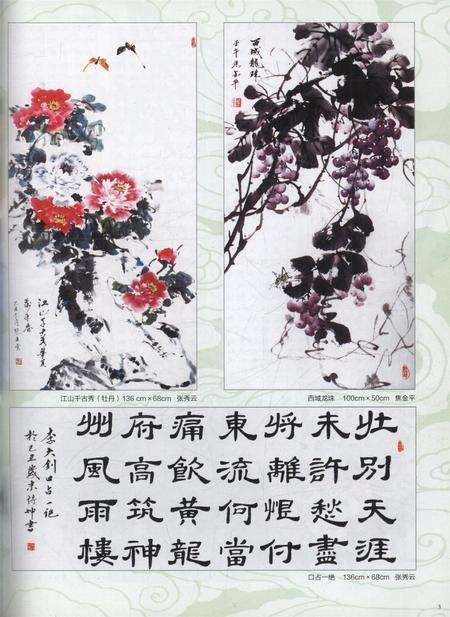 西域龍珠
江山千古秀（牡丹）136 cm×68cm 张秀云
西域龙珠 100cm×50cm 焦金平
壮别天涯
未許愁盡
將離恨付
東流何當
痛飲黄龍
府高筑神
州風雨樓
李大釗口占一绝
口占一绝 136cm×68cm 张秀云
3